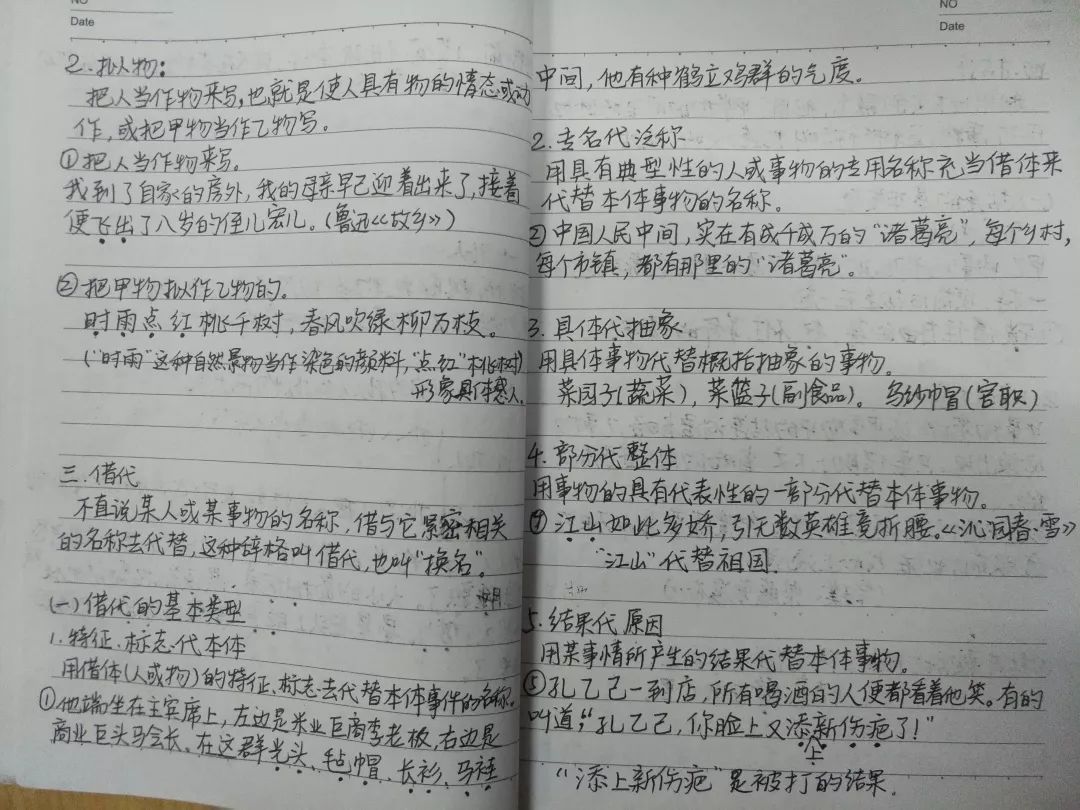 NO
Date
2.拟人物：
把人当作物来写，也就是使人具有物的情态或动
作，或把甲物当作乙物写。
①把人当作物来写。
我到了自家的房外，我的母亲早已迎着出来了，接着
便飞出了八岁的侄儿宏儿。(鲁迅《故乡》)
②把甲物拟作乙物的。
时雨点红桃千树，春风吹绿柳万枝。
("时雨"这种自然景物当作染色的颜料，"点红"桃树)
形象具体感人。
三.借代
不直说某人或某事物的名称，借与它紧密相关
的名称去代替，这种辞格叫借代，也叫"换名"。
(一)借代的基本类型
1.特征、标志代本体
用借体(人或物)的特征、标志去代替本体事件的名称。
①他端坐在主宾席上，左边是米业巨商李老板，右边是
商业巨头马会长。在这群光头、毡帽、长衫、马褂
NO
Date
中间，他有种鹤立鸡群的气度。
2.专名代泛称
用具有典型性的人或事物的专用名称充当借体来
代替本体事物的名称。
②中国人民中间，实在有成千成万的"诸葛亮"，每个乡村，
每个市镇，都有那里的"诸葛亮"。
3.具体代抽象
用具体事物代替概括抽象的事物。
菜园子(蔬菜)，菜篮子(副食品)。乌纱帽(官职)
4.部分代整体
用事物的具有代表性的一部分代替本体事物。
④江山如此多娇，引无数英雄竞折腰。《沁园春·雪》
"江山"代替祖国.
5.结果代原因
用某事情所产生的结果代替本体事物。
⑤孔乙己一到店，所有喝酒的人便都看着他笑。有的
叫道："孔乙己，你脸上又添上新伤疤了！"
"添上新伤疤"是被打的结果.